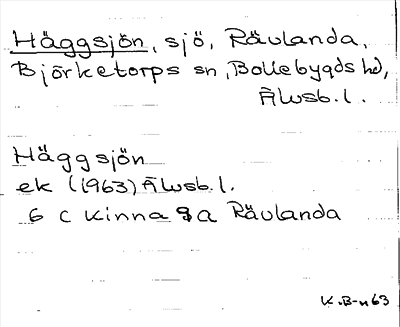 Häggsjön, sjö, Rävlanda,
Björketorps sn, Bollebygds hd,
Älvsb. l.
Häggsjön
ek (1963) Älvsb. l.
6 C Kinna 9 a Rävlanda
K.B-n 63